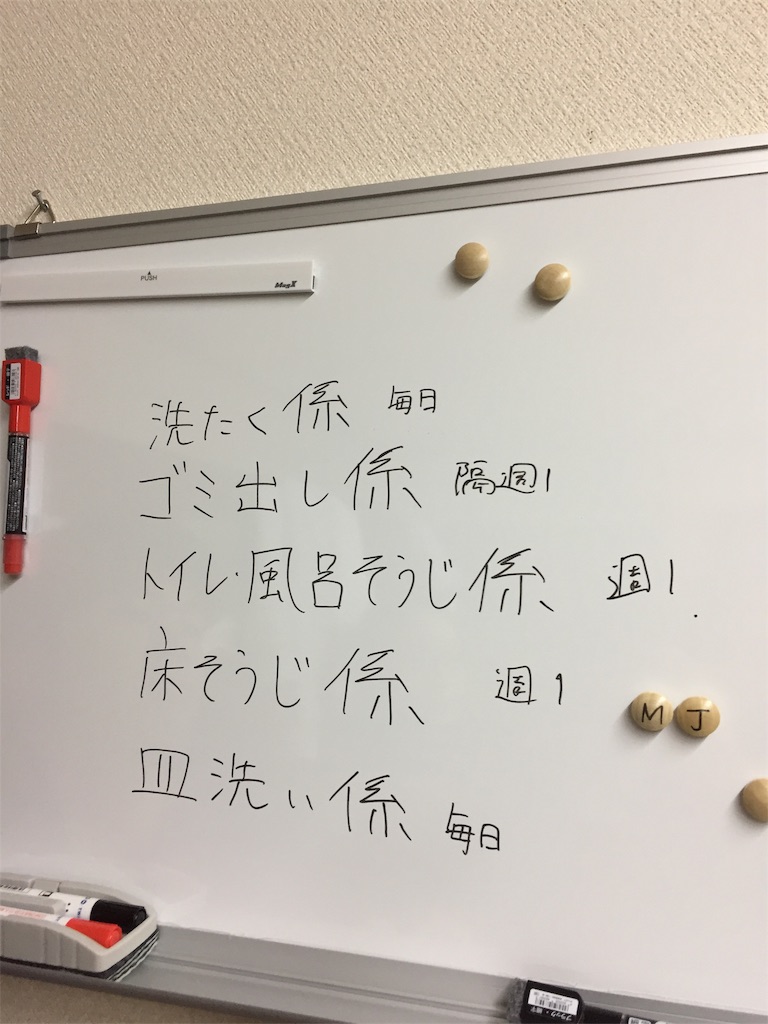 PUSH
MagX
洗たく係 毎日
ゴミ出し係 隔週1
トイレ・風呂そうじ係 週1
床そうじ係 週1
M J
皿洗い係 毎日